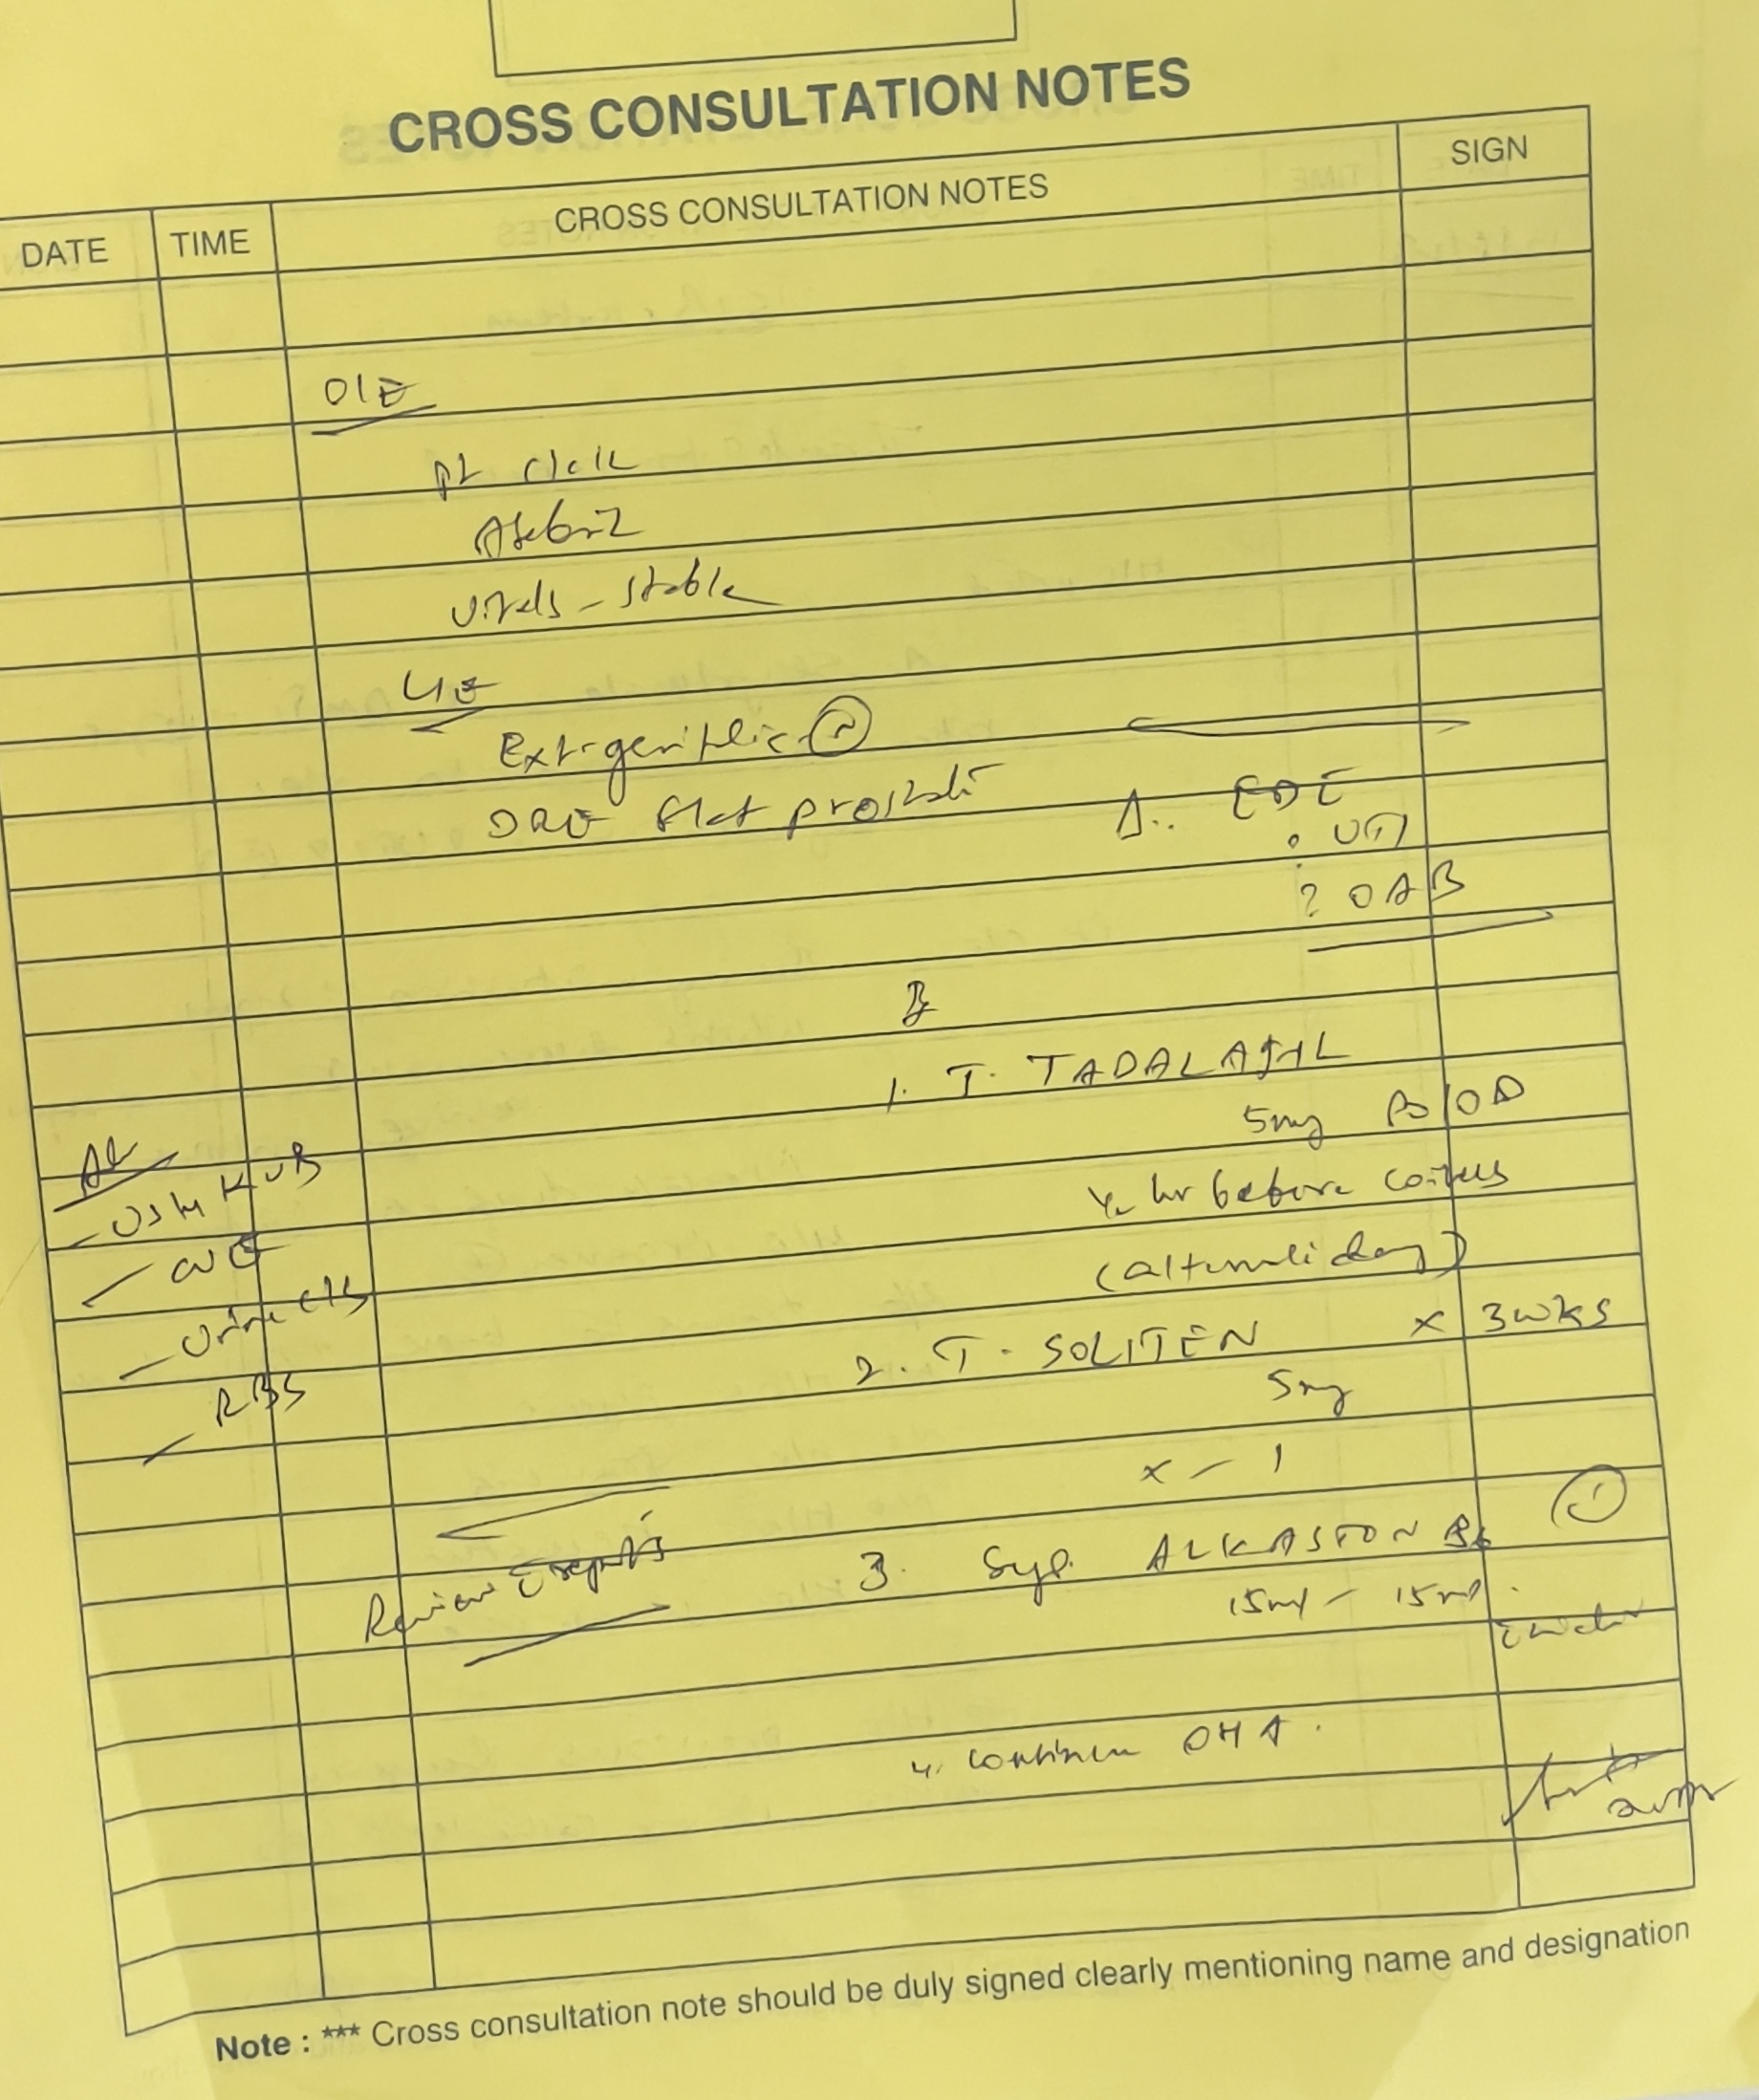 CROSS CONSULTATION NOTES
DATE TIME CROSS CONSULTATION NOTES SIGN
O/E
Pt c/c/c
Afebril
Vitals - stable
L/E
Ext-genitalia (N)
DRE flat prostate
Δ.. EDE
? UTI
? OAB
1. T. TADALAFIL
5mg PO/OD
½ hr before coitus
(alternate day)
Ad
- USG KUB
- CUE
- Urine C/S
- RBS
2. T. SOLITEN x 3wks
5mg
x - 1
Review c reports
3. Syp. ALKASTON B6 (1)
15ml - 15ml
c water
4. continue OHA.
Note : *** Cross consultation note should be duly signed clearly mentioning name and designation